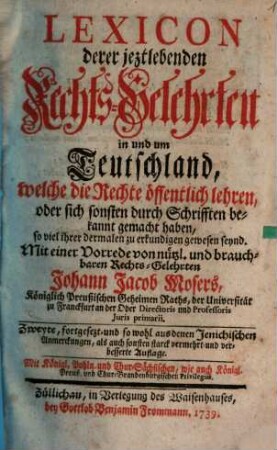 LEXICON
derer jeztlebenden
Rechts-Gelehrten
in und um
Teutschland,
welche die Rechte öffentlich lehren,
oder sich sonsten durch Schrifften be-
kannt gemacht haben,
so viel ihrer dermalen zu erkundigen gewesen seynd.
Mit einer Vorrede von nützl. und brauch-
baren Rechts-Gelehrten
Johann Jacob Mosers,
Königlich Preußischen Geheimen Raths, der Universität
zu Franckfurt an der Oder Directoris und Professoris
Juris primarii.
Zweyte, fortgesetzt- und so wohl aus denen Jenichischen
Anmerckungen, als auch sonsten starck vermehrt- und ver-
besserte Auflage.
Mit Königl. Pohln. und Chur-Sächsischen, wie auch Königl.
Preuß. und Chur-Brandenburgischen Privilegiis.
Züllichau, in Verlegung des Waisenhauses,
bey Gottlob Benjamin Frommann, 1739.